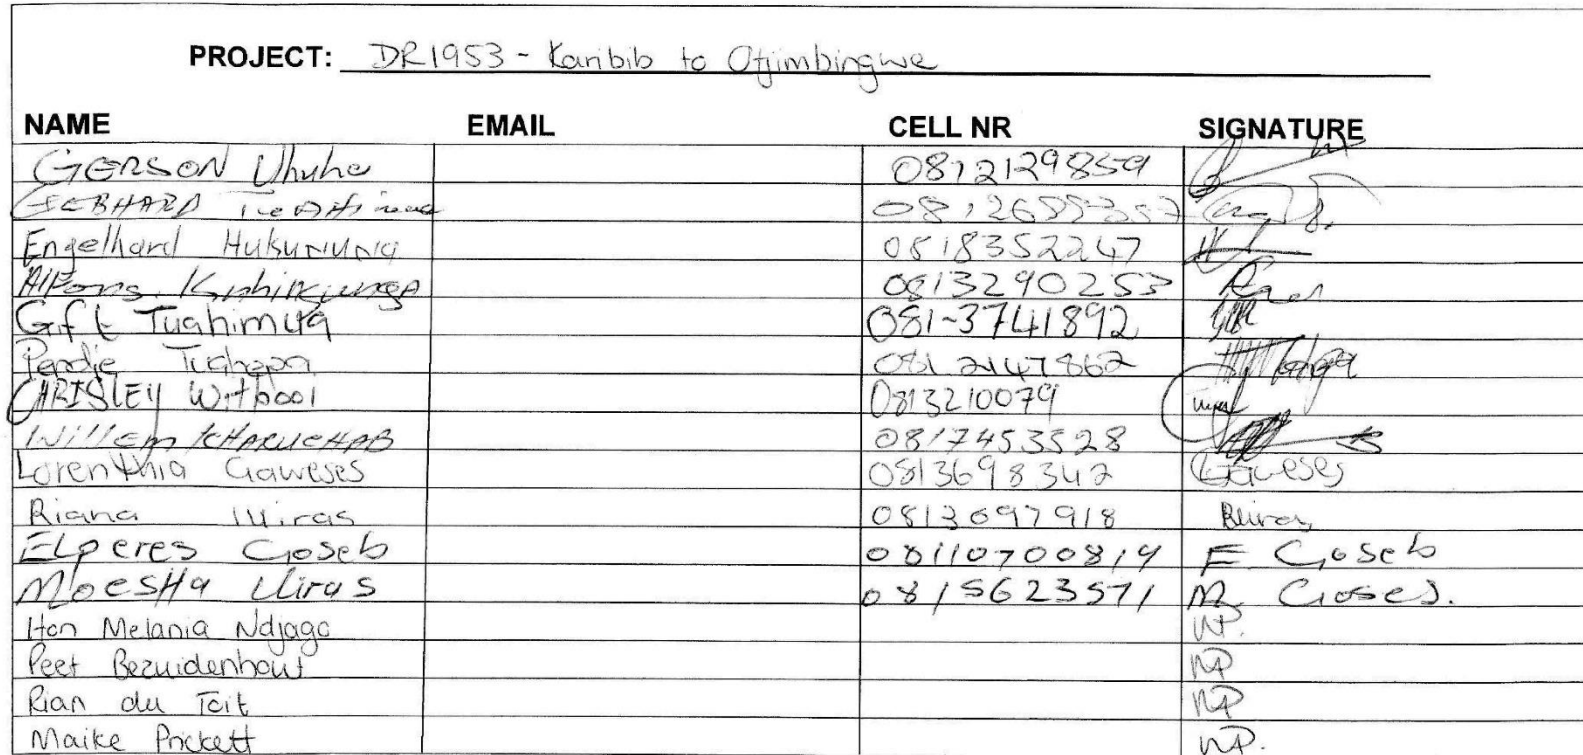 PROJECT: DR1953 - Karibib to Otjimbingwe
NAME EMAIL CELL NR SIGNATURE
GERSON Uhuhe 0812129859
GEBHARD
Engelhard Hukununa 0818352247
Alfons 0813290253
Gift Tuahimua 081-3741892
Pendje Tuahepa 081 2147862
CHRISLEY Witbooi 0813210079
Willem KHARUCHAB 0817453528
Lorenthia Gaweses 0813698342 Gaweses
Riana Uiras 0813697918
Elperes Goseb 0811070081,4 E. Goseb
Moesha Uiras 0815623571 M. Goses.
Hon Melania Ndjago NP.
Peet Bezuidenhout NP
Rian du Toit NP
Maike Prickett NP.